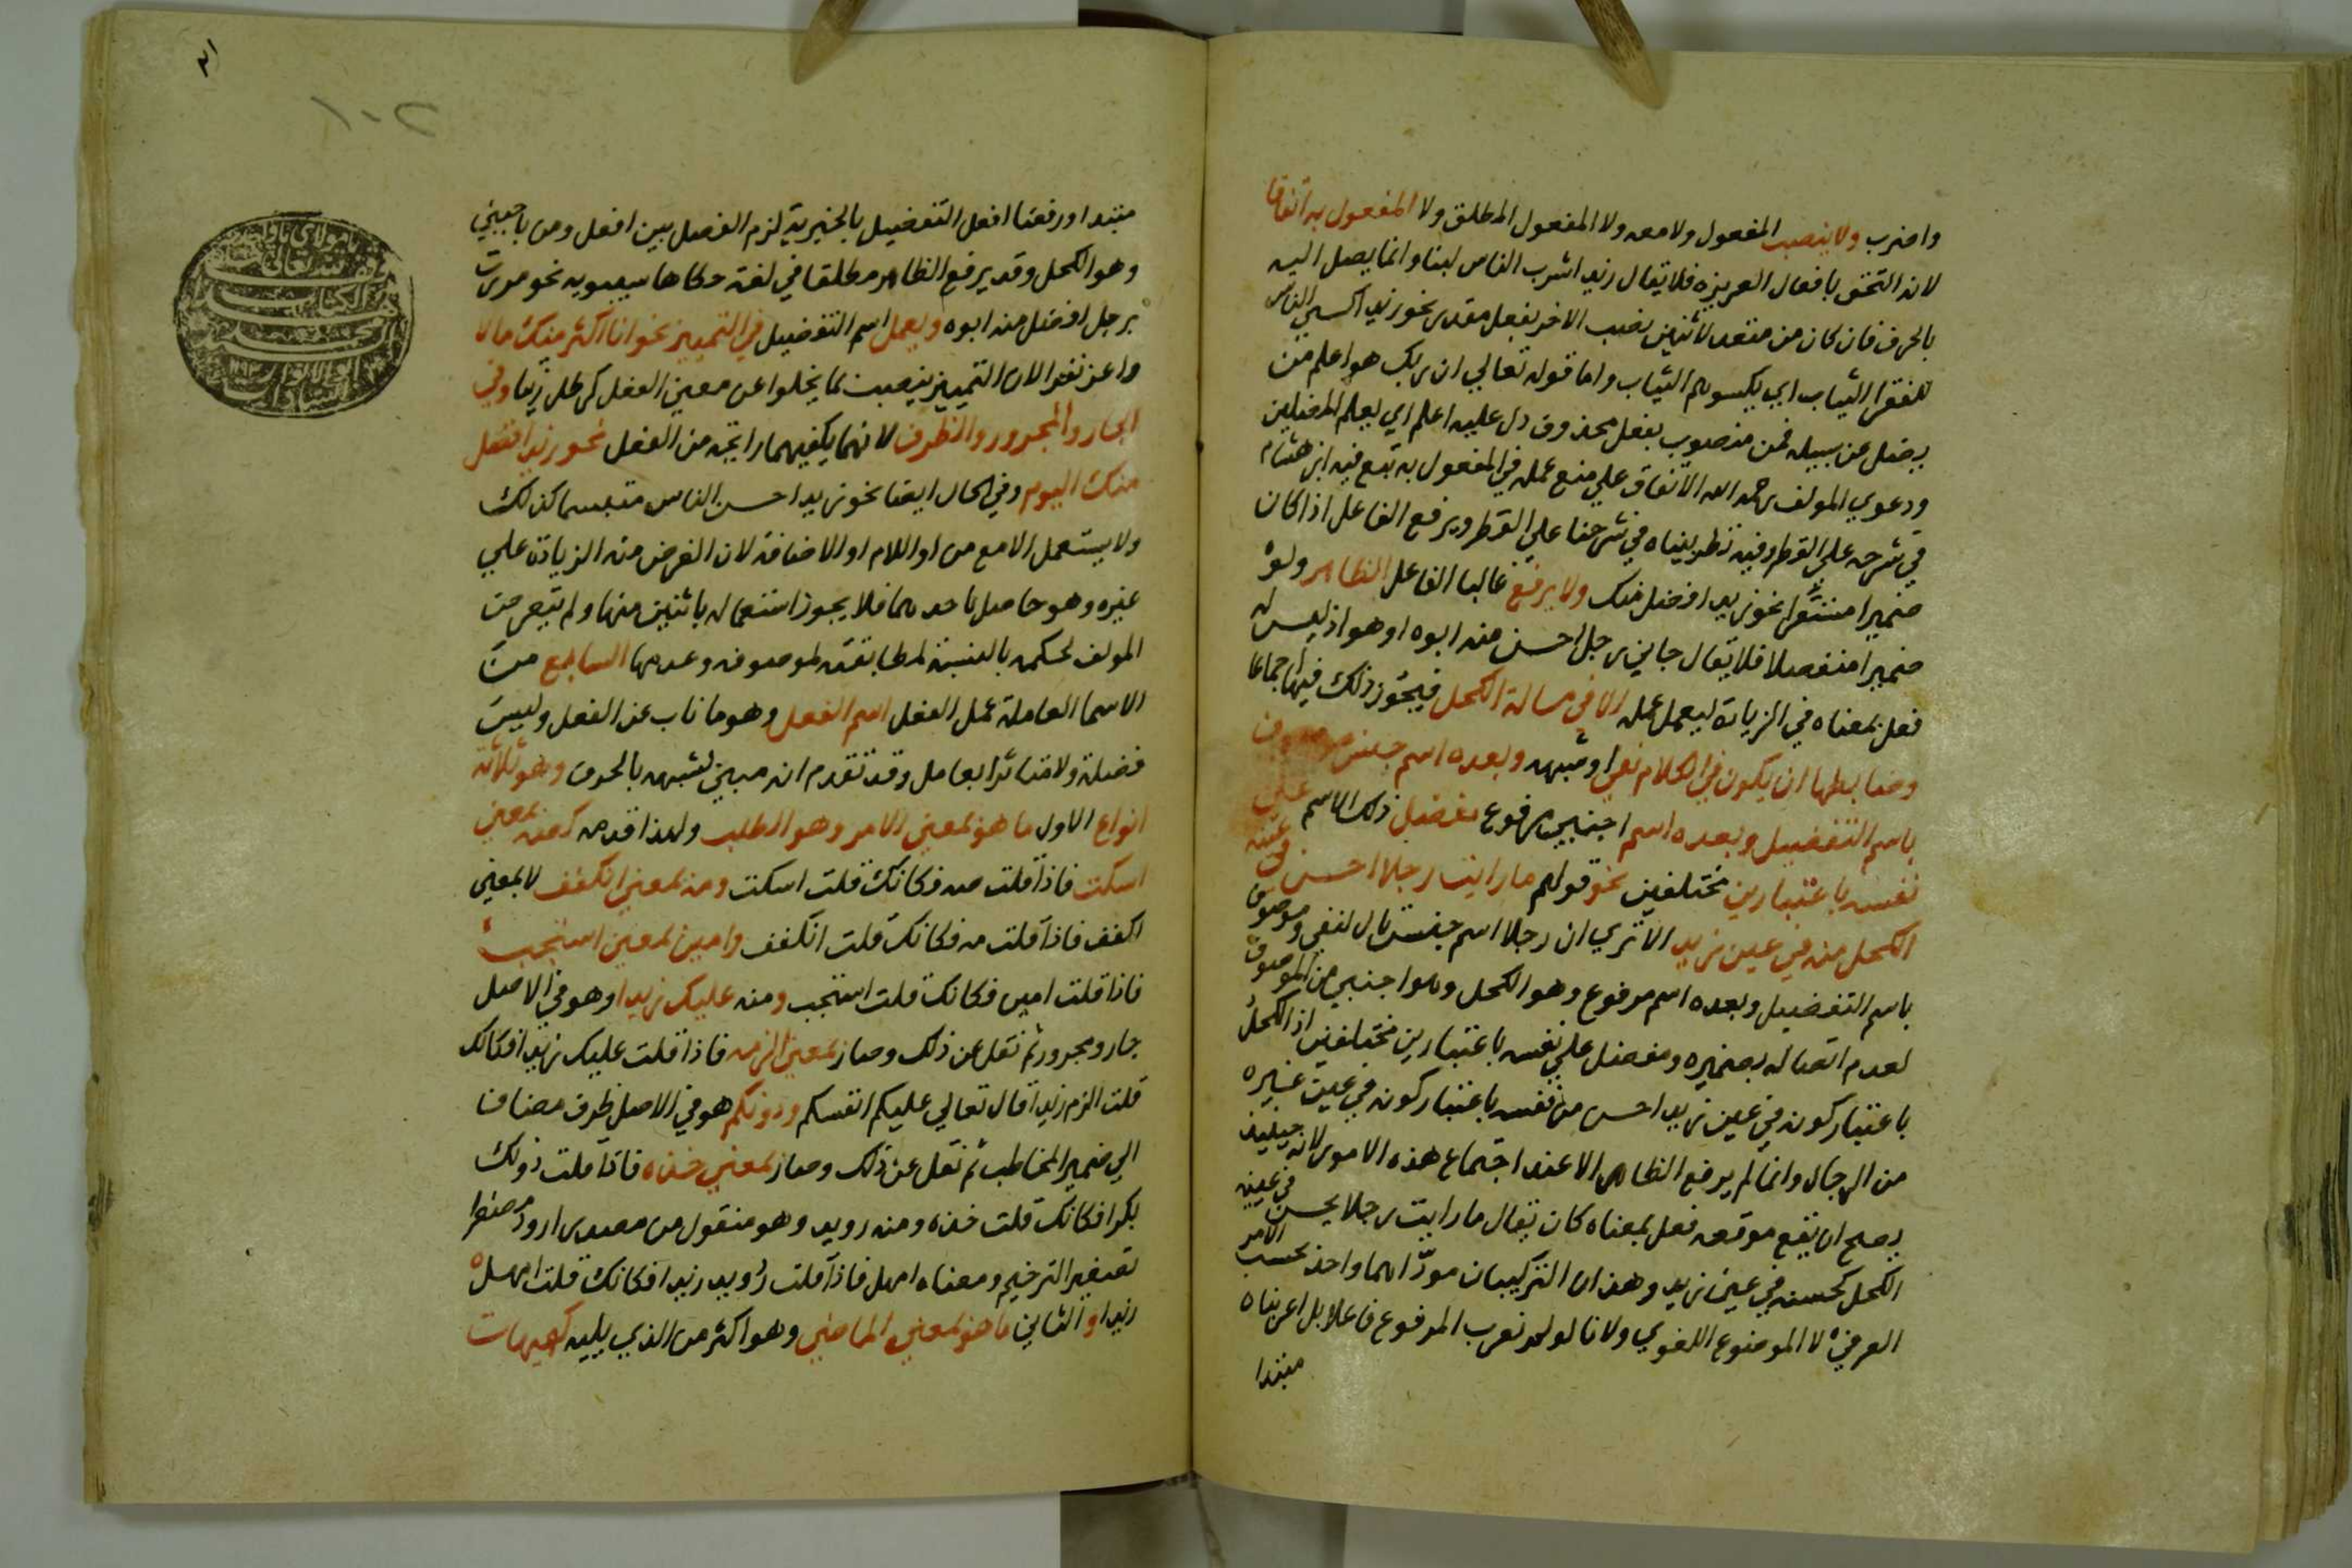 واضرب ولا ينصب المفعول ولا معه ولا المفعول المطلق ولا المفعول به اتفاقا
لانه التحق بافعال الغريزه فلا يقال زيد اشرب الناس لبنا وانما يصل اليه
بالحرف فان كان من متعد لاثنين نصب الاخر بفعل مقدر نحو زيد اكسى الناس
للفقرا الثياب اي يكسوهم الثياب واما قوله تعالي ان ربك هو اعلم من
يضل عن سبيله فمن منصوب بفعل محذوف دل عليه اعلم اي يعلم المضلين
ودعوي المولف رحمه الله الاتفاق علي منع عمله في المفعول به تبع فيه ابن هشام
في شرحه علي القطر وفيه نظر بيناه في شرحنا علي القطر ويرفع الفاعل اذا كان
ضميرا مستترا نحو زيد افضل منك ولا يرفع غالبا الفاعل الظاهر ولو
ضميرا منفصلا فلا يقال جاني رجل احسن منه ابوه او هو اذ ليس له
فعل بمعناه في الزيادة ليعمل عمله الا في مسالة الكحل فيجوز ذلك فيها اجماعا
وضابطها ان يكون في الكلام نفي او شبهه وبعده اسم جنس موصوف
باسم التفضيل وبعده اسم اجنبي مرفوع مفضل ذلك الاسم علي
نفسه باعتبارين مختلفين نحو قولهم ما رايت رجلا احسن في عينه
الكحل منه في عين زيد الا تري ان رجلا اسم جنس تال لنفي وموصوف
باسم التفضيل وبعده اسم مرفوع وهو الكحل وهو اجنبي من الموصوف
لعدم اتصاله بضميره ومفضل علي نفسه باعتبارين مختلفين اذ الكحل
باعتبار كونه في عين زيد احسن من نفسه باعتبار كونه في عين غيره
من الرجال وانما لم يرفع الظاهر الا عند اجتماع هذه الامور لانه حينيذ
يصلح ان يقع موقعه فعل بمعناه كان يقال ما رايت رجلا يحسن في عينه
الكحل كحسنه في عين زيد وهذان التركيبان موداهما واحد بحسب الامر
العرفي لا الموضوع اللغوي ولانا لو لم نعرب المرفوع فاعلا بل اعربناه
مبتدا
مبتدا ورفعنا افعل التفضيل بالخبرية لزم الفصل بين افعل ومن باجنبي
وهو الكحل وقد يرفع الظاهر مطلقا في لغة حكاها سيبويه نحو مررت
برجل افضل منه ابوه ويعمل اسم التفضيل في التمييز نحو انا اكثر منك مالا
واعز نفرا لان التمييز ينصب بما يخلوا عن معني الفعل كرطل زيتا وفي
الجار والمجرور والظرف لانهما يكفيهما رايحة من الفعل نحو زيد افضل
منك اليوم وفي الحال ايضا نحو زيد احسن الناس متبسما كذلك
ولا يستعمل الا مع من او اللام او الاضافة لان الغرض منه الزيادة علي
غيره وهو حاصل باحدها فلا يجوز استعماله باثنين منها ولم يتعرض
المولف لحكمه بالنسبة لمطابقته لموصوفه وعدمها السابع من
الاسما العاملة عمل الفعل اسم الفعل وهو ما ناب عن الفعل وليس
فضلة ولا متاثرا بعامل وقد تقدم انه مبني لشبهه بالحرف وهو ثلاثة
انواع الاول ما هو بمعني الامر وهو الطلب ولهذا قدمه كصه بمعني
اسكت فاذا قلت صه فكانك قلت اسكت ومه بمعني انكفف لا بمعني
اكفف فاذا قلت مه فكانك قلت انكفف وامين بمعني استجب
فاذا قلت امين فكانك قلت استجب ومنه عليك زيدا وهو في الاصل
جار ومجرور ثم نقل عن ذلك وصار بمعني الزمه فاذا قلت عليك زيدا فكانك
قلت الزم زيدا قال تعالي عليكم انفسكم ودونكم هو في الاصل ظرف مضاف
الي ضمير المخاطب ثم نقل عن ذلك وصار بمعني خذه فاذا قلت دونك
بكرا فكانك قلت خذه ومنه رويد وهو منقول من مصدر ارود مصغرا
تصغير الترخيم ومعناه امهل فاذا قلت رويد زيدا فكانك قلت امهل
زيدا والثاني ما هو بمعني الماضي وهو اكثر من الذي يليه كهيهات
١٠٢